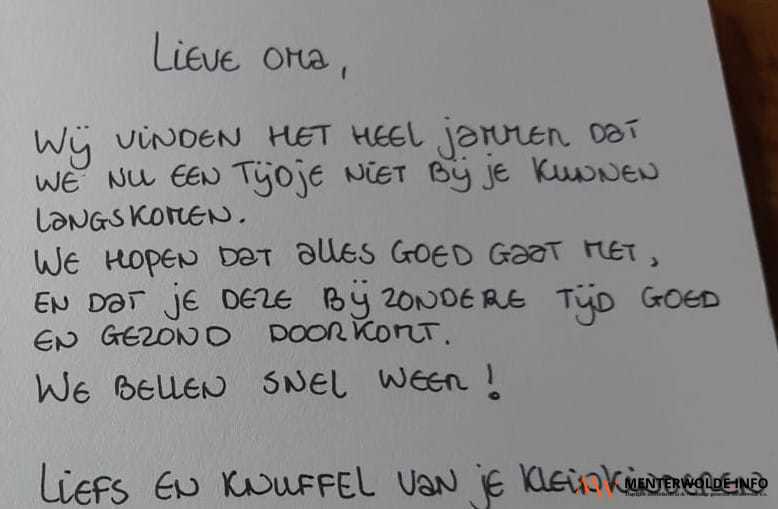 Lieve Oma,
Wij vinden het heel jammer dat
we nu een tijdje niet bij je kunnen
langskomen.
We hopen dat alles goed gaat met,
en dat je deze bijzondere tijd goed
en gezond doorkomt.
We bellen snel weer!
Liefs en knuffel van je kleinkinderen
MENTERWOLDE.INFO